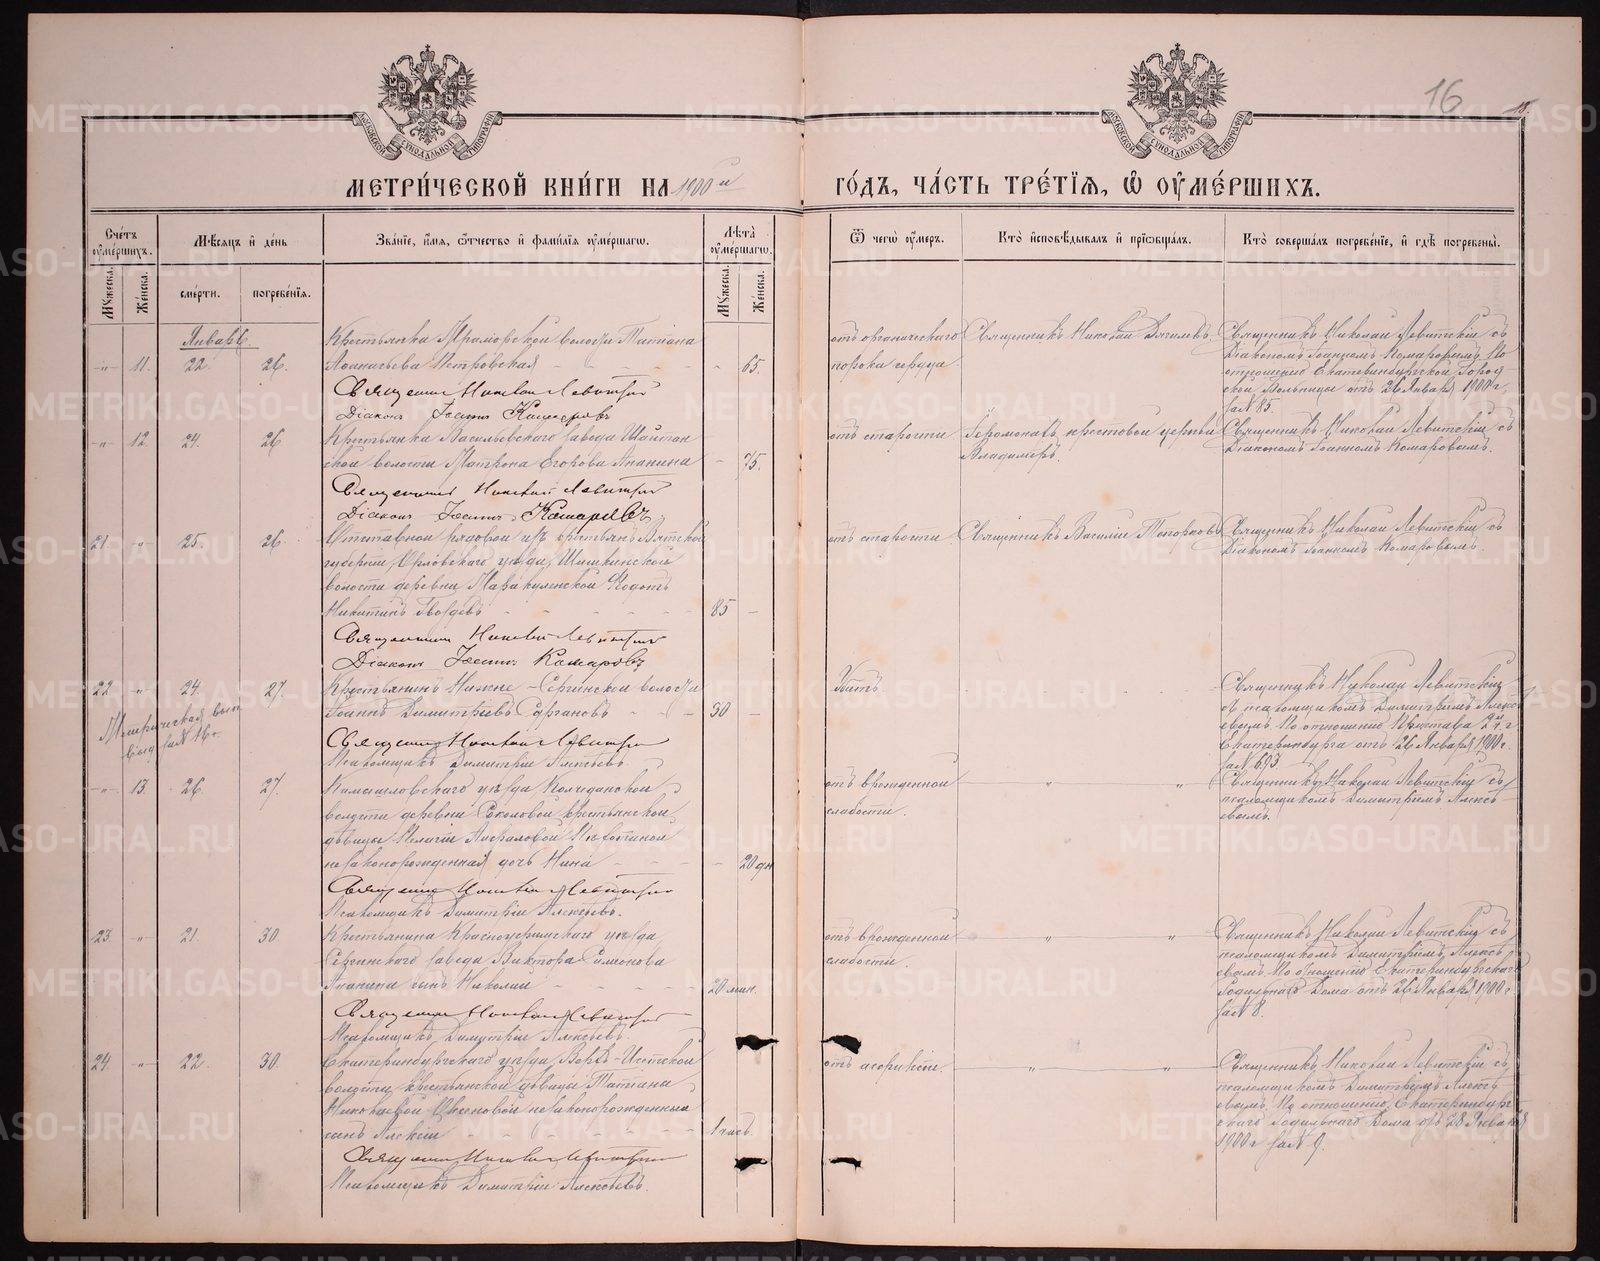 16
МОСКОВСКОЙ СѴНОДАЛЬНОЙ ТИПОГРАФІИ
МОСКОВСКОЙ СѴНОДАЛЬНОЙ ТИПОГРАФІИ
МЕТРИ́ЧЕСКОЙ КНИ́ГИ НА 1900 й
ГО́ДЪ, ЧА́СТЬ ТРЕ́ТІѦ, Ѡ ОУМЕ́РШИХЪ.
Сче́тъ оуме́ршихъ.
Мѣ́сѧцъ и де́нь
Зва́нїе, и́мѧ, ѻ҆́тчество и фами́лїѧ оуме́ршагѡ.
Лѣ́та оуме́ршагѡ.
Ѿ чегѡ̀ оу́меръ.
Кто̀ и҆сповѣ́дывалъ и прїѡбща́лъ.
Кто̀ соверша́лъ погребе́нїе, и гдѣ̀ погребены̀.
Мꙋ́жеска.
Же́нска.
сме́рти.
погребе́нїѧ.
Мꙋ́жеска.
Же́нска.
Январь
-"- 11. 22. 26.
Крестьянка Мраморской волости Татіана
Аѳанасьева Петровская - 65.
Священникъ Николай Левитскій
Діаконъ Іоаннъ Комаровъ
отъ органическаго
порока сердца.
Священникъ Николай
Священникъ Николай Левитскій съ
Діакономъ Іоанномъ Комаровымъ. По
отношенію Екатеринбургской Город-
ской Больницы отъ 26 Января 1900 г.
за № 85.
-"- 12. 24. 26
Крестьянка Васильевскаго завода Шайтан
ской волости Матрона Егорова Ананина - 75.
Священникъ Николай Левитскій
Діаконъ Іоаннъ Комаровъ
отъ старости
Іеромонахъ крестовой церкви
Владиміръ.
Священникъ Николай Левитскій съ
Діакономъ Іоанномъ Комаровымъ.
21 -"- 25. 26.
Отставной рядовой изъ крестьянъ Вятской
губерніи Орловскаго уѣзда
волости деревни Ѳедотъ
Никитинъ Гвоздевъ 85 -
Священникъ Николай Левитскій
Діаконъ Іоаннъ Комаровъ
отъ старости
Священникъ Василій Топорковъ
Священникъ Николай Левитскій съ
Діакономъ Іоанномъ Комаровымъ.
22. -"- 24. 27.
Метрическая вып
выд. за № 16
Крестьянинъ Нижне-Сергинской волости
Іоаннъ Димитріевъ 30 -
Священникъ Николай Левитскій
Псаломщикъ Димитрій Алексѣевъ.
Убитъ.
Священникъ Николай Левитскій
съ псаломщикомъ Димитріемъ Алексѣ
евымъ По отношенію Пристава 2й ч.
Екатеринбурга отъ 26 Января 1900 г.
за № 693
-"- 13. 26. 27.
Камышловскаго уѣзда Колчеданской
волости деревни Соколовой крестьянской
дѣвицы Пелагіи
незаконорожденная дочь Нина - 20 дн
Священникъ Николай Левитскій
Псаломщикъ Димитрій Алексѣевъ.
отъ врожденной
слабости.
" "
Священникъ Николай Левитскій съ
псаломщикомъ Димитріемъ Алексѣ-
евымъ.
23. -"- 21. 30
Крестьянина Красноуфимскаго уѣзда
Сергинскаго завода Виктора Симонова
Ананина сынъ Николай 20 мин.
Священникъ Николай Левитскій
Псаломщикъ Димитрій Алексѣевъ.
отъ врожденной
слабости.
" "
Священникъ Николай Левитскій съ
псаломщикомъ Димитріемъ Алексѣ
евымъ По отношенію Екатеринбургскаго
Родильнаго Дома отъ 26 Января 1900 г.
за № 8.
24. -"- 22. 30.
Екатеринбургскаго уѣзда Верхъ-Исетской
волости крестьянской дѣвицы Татіаны
Николаевой незаконорожденный
сынъ Алексій 1 часъ.
Священникъ Николай Левитскій
Псаломщикъ Димитрій Алексѣевъ.
отъ асфиксіи.
" "
Священникъ Николай Левитскій съ
псаломщикомъ Димитріемъ Алексѣ
евымъ. По отношенію Екатеринбург-
скаго Родильнаго Дома отъ 28 Января
1900 г за № 9.